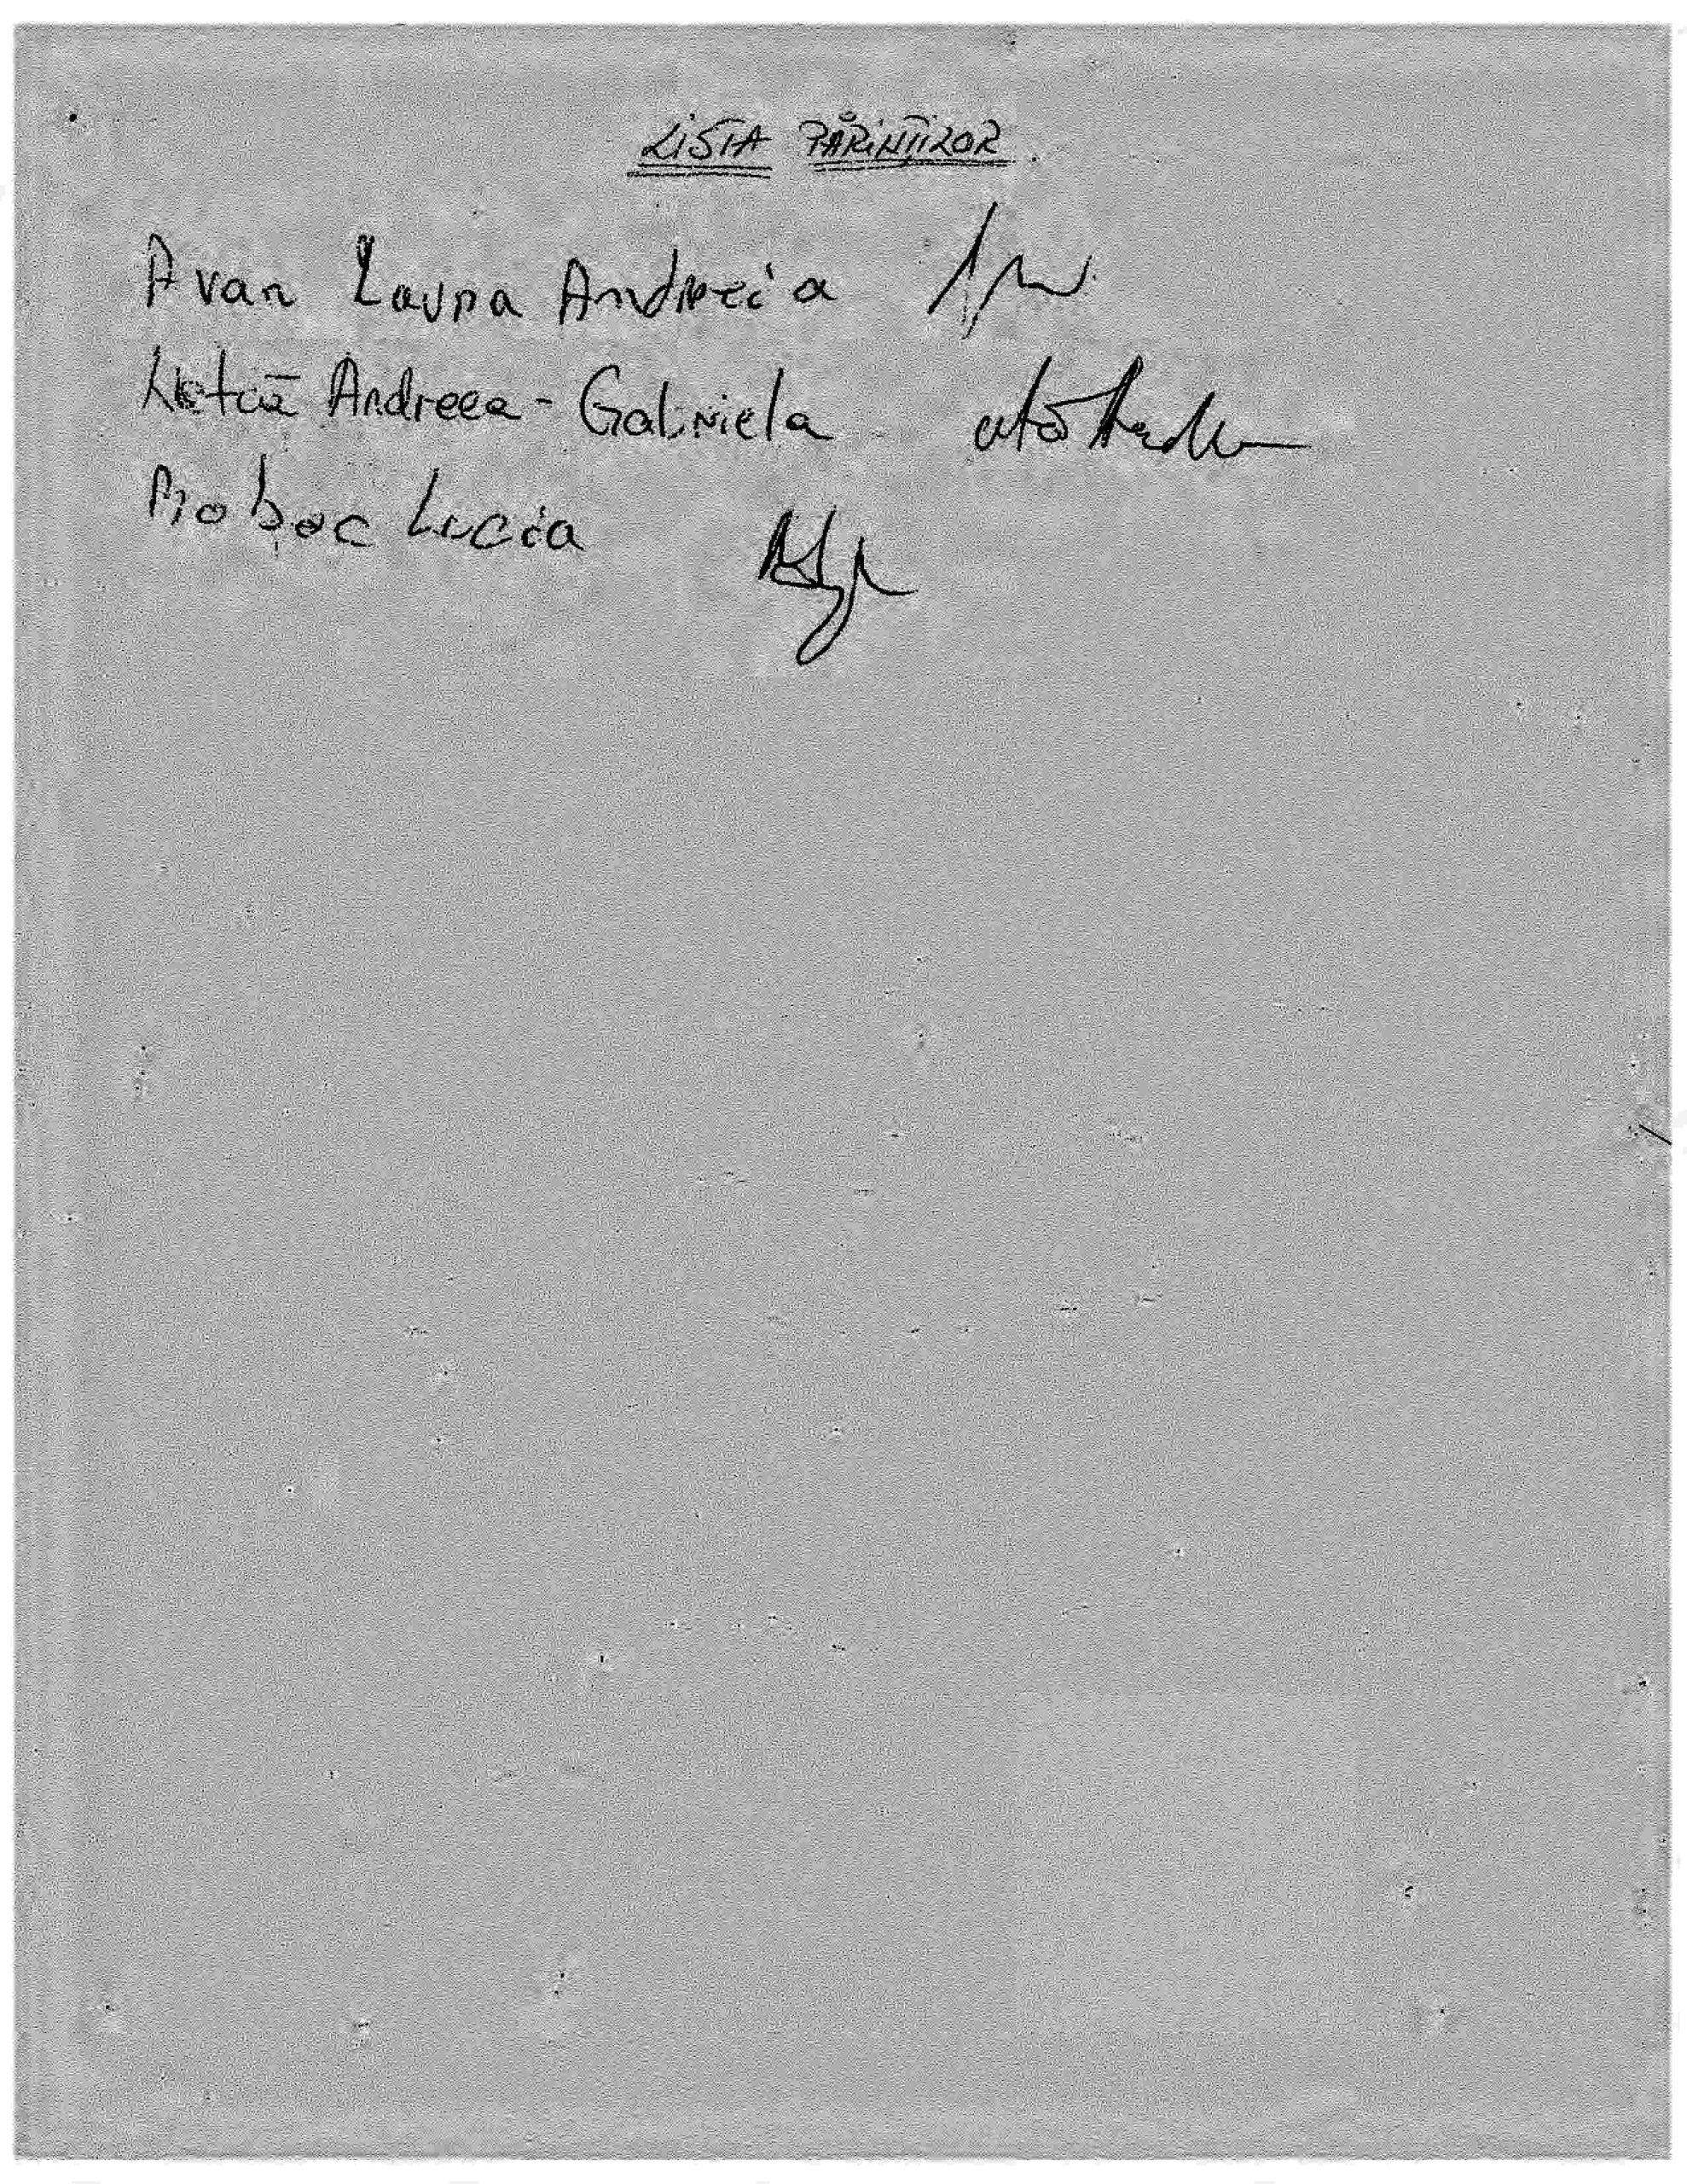 LISTA PĂRINȚILOR
Avan Laura Andreia
Andreea-Gabriela
Lucia